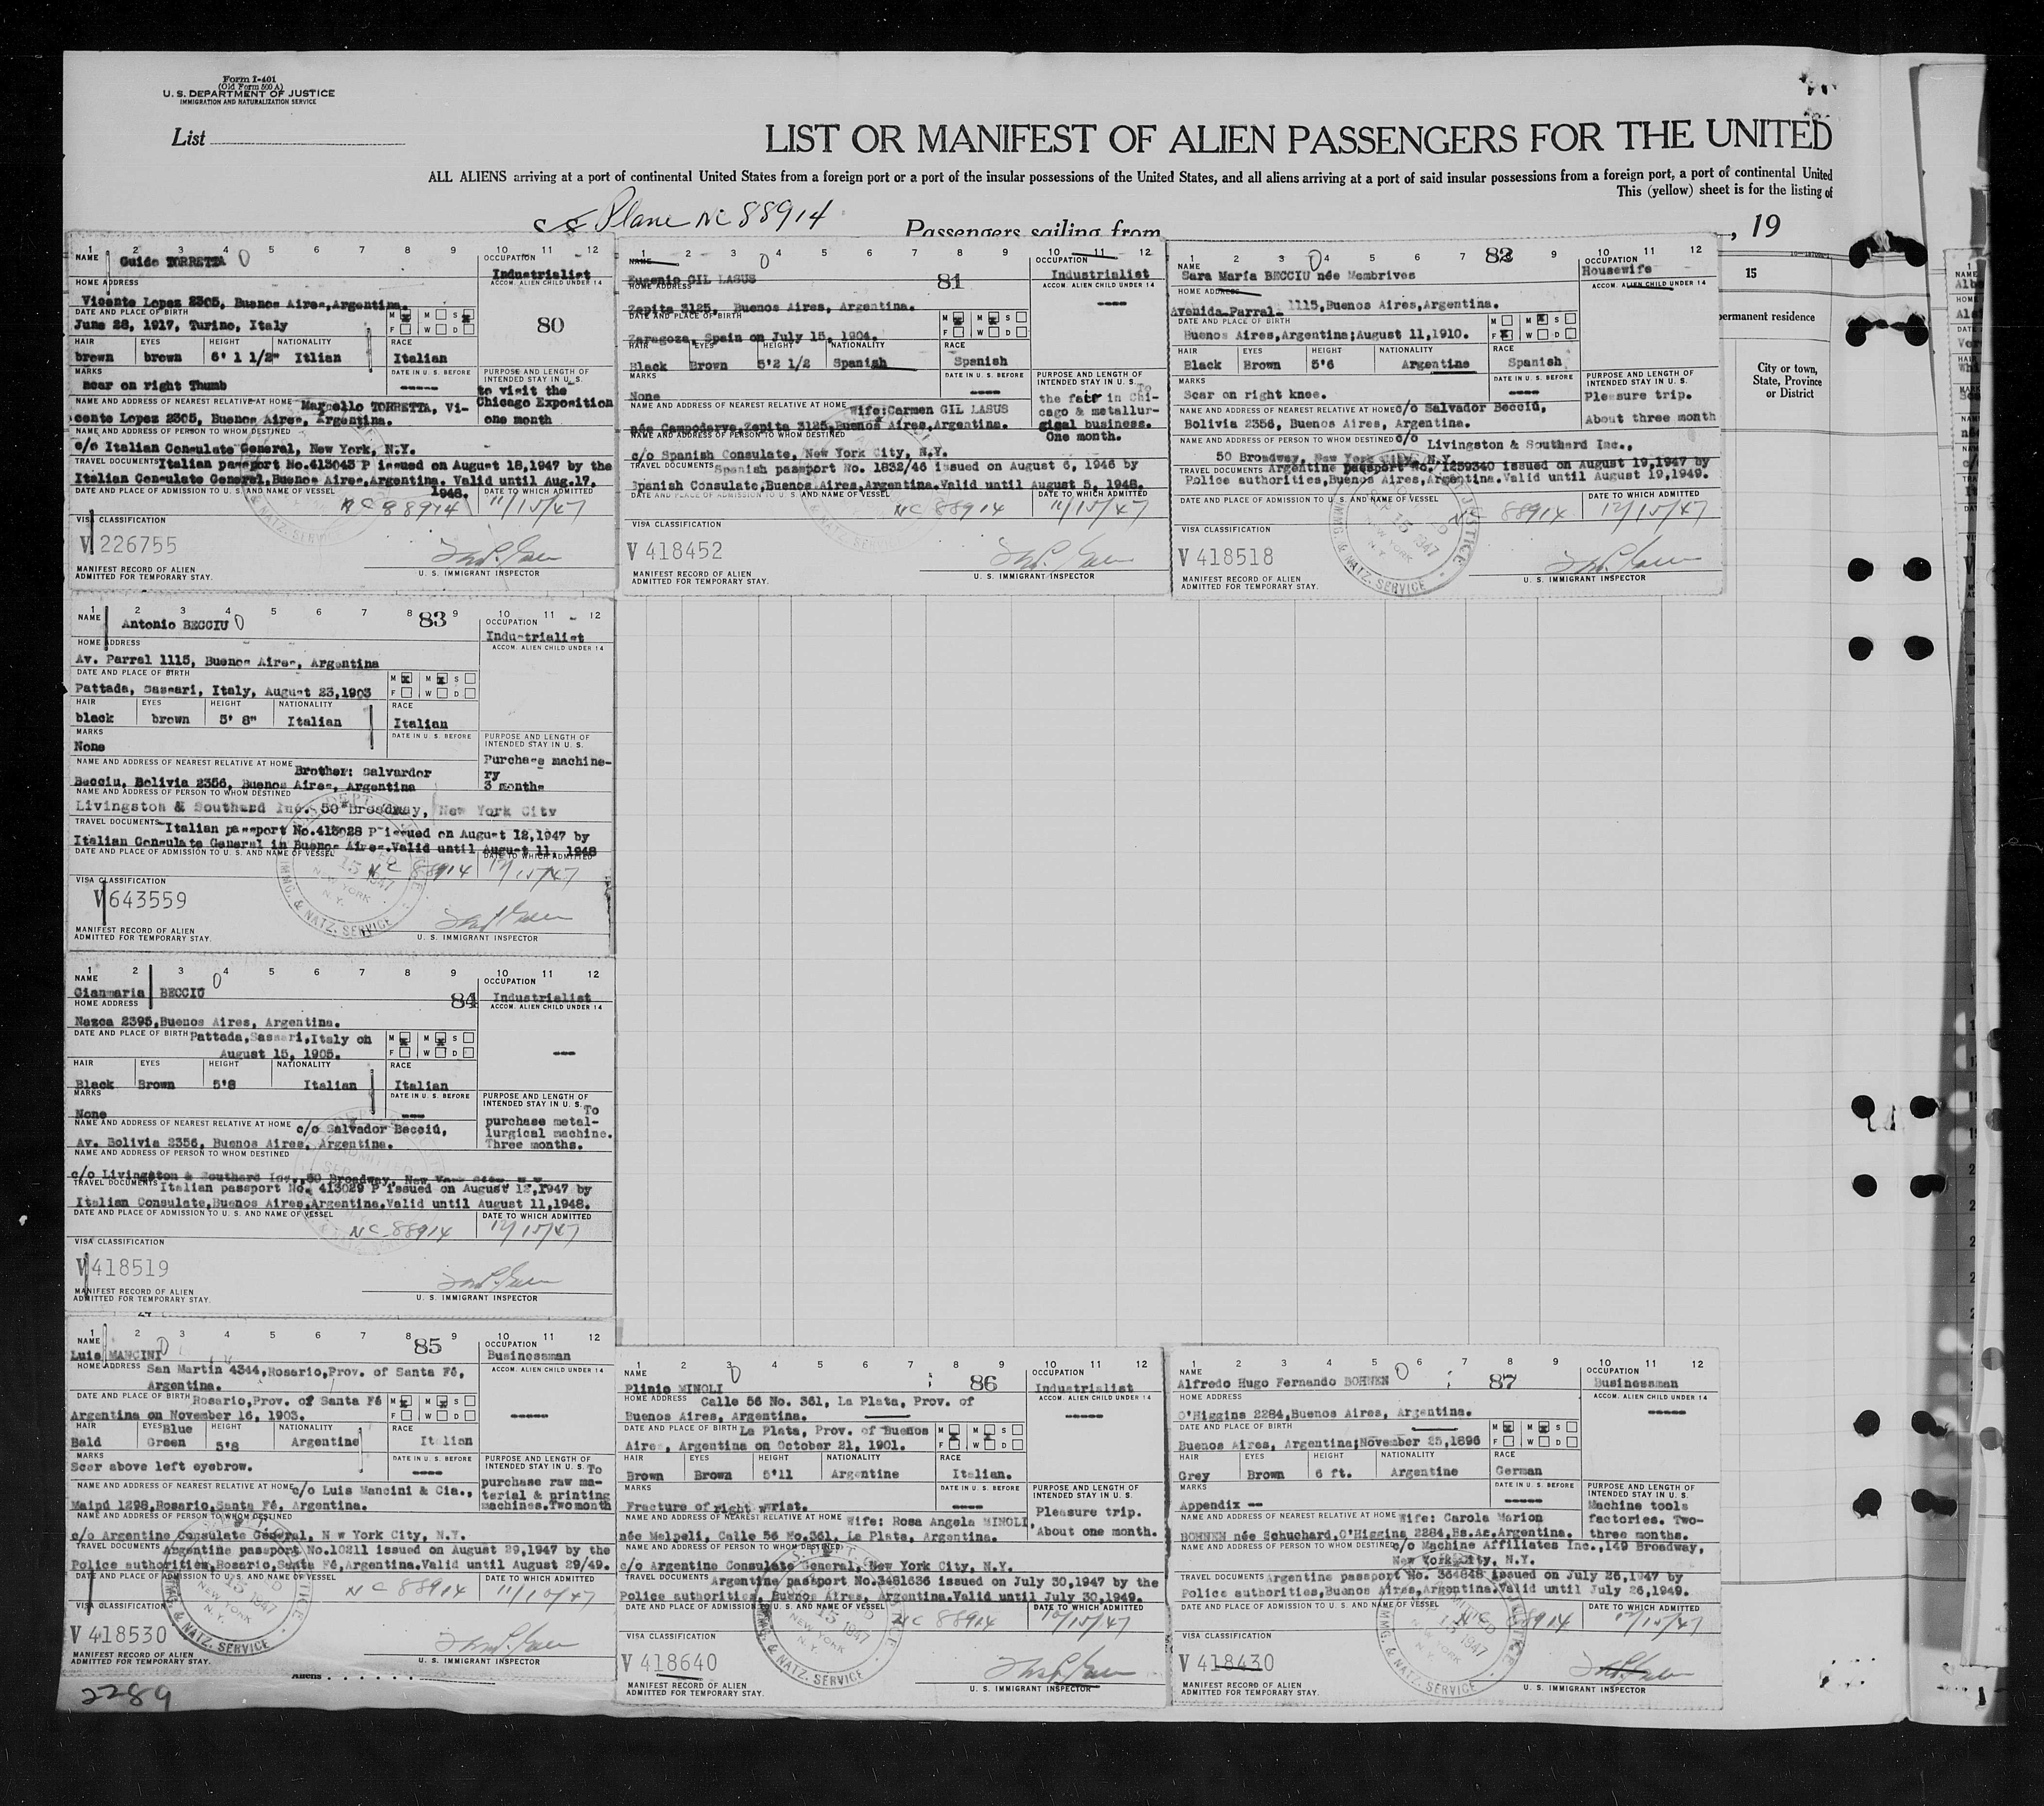 Form I-401
(Old Form 500 A)
U. S. DEPARTMENT OF JUSTICE
IMMIGRATION AND NATURALIZATION SERVICE
List
LIST OR MANIFEST OF ALIEN PASSENGERS FOR THE UNITED
ALL ALIENS arriving at a port of continental United States from a foreign port or a port of the insular possessions of the United States, and all aliens arriving at a port of said insular possessions from a foreign port, a port of continental United
This (yellow) sheet is for the listing of
Plane NC 88914
Passengers sailing from
, 19
15
permanent residence
City or town,
State, Province
or District
1 2 3 4 5 6 7 8 9 10 11 12
NAME Guido TORRETTA
OCCUPATION
Industrialist
HOME ADDRESS
ACCOM. ALIEN CHILD UNDER 14
Vicente Lopez 2305, Buenos Aires, Argentina.
DATE AND PLACE OF BIRTH
M M S
June 28, 1917, Turino, Italy
F W D
80
HAIR EYES HEIGHT NATIONALITY RACE
brown brown 6' 1 1/2" Itlian Italian
MARKS
DATE IN U. S. BEFORE
PURPOSE AND LENGTH OF INTENDED STAY IN U. S.
scar on right Thumb
-----
to visit the
Chicago Exposition
one month
NAME AND ADDRESS OF NEAREST RELATIVE AT HOME Marcello TORRETTA, Vi-
cente Lopez 2305, Buenos Aires, Argentina.
NAME AND ADDRESS OF PERSON TO WHOM DESTINED
c/o Italian Consulate General, New York, N.Y.
TRAVEL DOCUMENTS Italian passport No.413043 P issued on August 18,1947 by the
Italian Consulate General,Buenos Aires,Argentina. Valid until Aug.17,
1948.
DATE AND PLACE OF ADMISSION TO U. S. AND NAME OF VESSEL
DATE TO WHICH ADMITTED
NC 88914 11/15/47
VISA CLASSIFICATION
V 226755
MANIFEST RECORD OF ALIEN
ADMITTED FOR TEMPORARY STAY.
U. S. IMMIGRANT INSPECTOR
1 2 3 4 5 6 7 8 9 10 11 12
NAME
OCCUPATION
Eugenio GIL LASUS
81
Industrialist
HOME ADDRESS
ACCOM. ALIEN CHILD UNDER 14
----
Zepita 3125, Buenos Aires, Argentina.
DATE AND PLACE OF BIRTH
M M S
F W D
Zaragoza, Spain on July 15, 1904.
HAIR EYES HEIGHT NATIONALITY RACE
Black Brown 5'2 1/2 Spanish Spanish
MARKS
DATE IN U. S. BEFORE
PURPOSE AND LENGTH OF INTENDED STAY IN U. S.
None
----
To
the fair in Chi-
cago & metallur-
gical business.
One month.
NAME AND ADDRESS OF NEAREST RELATIVE AT HOME Wife:Carmen GIL LASUS
née Campodarve,Zepita 3125,Buenos Aires,Argentina.
NAME AND ADDRESS OF PERSON TO WHOM DESTINED
c/o Spanish Consulate, New York City, N.Y.
TRAVEL DOCUMENTS Spanish passport No. 1832/46 issued on August 6, 1946 by
Spanish Consulate,Buenos Aires,Argentina.Valid until August 5, 1948.
DATE AND PLACE OF ADMISSION TO U. S. AND NAME OF VESSEL
DATE TO WHICH ADMITTED
NC 88914 11/15/47
VISA CLASSIFICATION
V 418452
MANIFEST RECORD OF ALIEN
ADMITTED FOR TEMPORARY STAY.
U. S. IMMIGRANT INSPECTOR
1 2 3 4 5 6 7 82 9 10 11 12
NAME
OCCUPATION
Sara María BECCIU née Membrives
Housewife
HOME ADDRESS
ACCOM. ALIEN CHILD UNDER 14
Avenida Parral 1115,Buenos Aires,Argentina.
DATE AND PLACE OF BIRTH
M M S
Buenos Aires,Argentina;August 11,1910.
F W D
HAIR EYES HEIGHT NATIONALITY RACE
Black Brown 5'6 Argentine Spanish
MARKS
DATE IN U. S. BEFORE
PURPOSE AND LENGTH OF INTENDED STAY IN U. S.
Scar on right knee.
----
Pleasure trip.
About three month
NAME AND ADDRESS OF NEAREST RELATIVE AT HOME c/o Salvador Becciú,
Bolivia 2356, Buenos Aires, Argentina.
NAME AND ADDRESS OF PERSON TO WHOM DESTINED c/o Livingston & Southard Inc.,
50 Broadway, New York City, N.Y.
TRAVEL DOCUMENTS Argentine passport No. 1259340 issued on August 19,1947 by
Police authorities,Buenos Aires,Argentina.Valid until August 19,1949.
DATE AND PLACE OF ADMISSION TO U. S. AND NAME OF VESSEL
DATE TO WHICH ADMITTED
NC 88914 12/15/47
VISA CLASSIFICATION
V 418518
MANIFEST RECORD OF ALIEN
ADMITTED FOR TEMPORARY STAY.
U. S. IMMIGRANT INSPECTOR
1 2 3 4 5 6 7 8 83 9 10 11 12
NAME Antonio BECCIU
OCCUPATION
Industrialist
HOME ADDRESS
ACCOM. ALIEN CHILD UNDER 14
Av. Parral 1115, Buenos Aires, Argentina
DATE AND PLACE OF BIRTH
M M S
Pattada, Sassari, Italy, August 23,1903
F W D
HAIR EYES HEIGHT NATIONALITY RACE
black brown 5' 8" Italian Italian
MARKS
DATE IN U. S. BEFORE
PURPOSE AND LENGTH OF INTENDED STAY IN U. S.
None
Purchase machine-
ry
3 months
NAME AND ADDRESS OF NEAREST RELATIVE AT HOME Brother: Salvardor
Becciu, Bolivia 2356, Buenos Aires, Argentina
NAME AND ADDRESS OF PERSON TO WHOM DESTINED
Livingston & Southard Inc. 50 Broadway, New York City
TRAVEL DOCUMENTS Italian passport No.413028 P issued on August 12,1947 by
Italian Consulate General in Buenos Aires.Valid until August 11, 1948
DATE AND PLACE OF ADMISSION TO U. S. AND NAME OF VESSEL
DATE TO WHICH ADMITTED
NC 88914 12/15/47
VISA CLASSIFICATION
V 643559
MANIFEST RECORD OF ALIEN
ADMITTED FOR TEMPORARY STAY.
U. S. IMMIGRANT INSPECTOR
1 2 3 4 5 6 7 8 9 10 11 12
NAME
OCCUPATION
Gianmaria BECCIU
84
Industrialist
HOME ADDRESS
ACCOM. ALIEN CHILD UNDER 14
Nazca 2395,Buenos Aires, Argentina.
DATE AND PLACE OF BIRTH Pattada,Sassari,Italy on
M M S
August 15, 1905.
F W D
---
HAIR EYES HEIGHT NATIONALITY RACE
Black Brown 5'8 Italian Italian
MARKS
DATE IN U. S. BEFORE
PURPOSE AND LENGTH OF INTENDED STAY IN U. S. To
None
---
purchase metal-
lurgical machine.
Three months.
NAME AND ADDRESS OF NEAREST RELATIVE AT HOME c/o Salvador Becciú,
Av. Bolivia 2356, Buenos Aires, Argentina.
NAME AND ADDRESS OF PERSON TO WHOM DESTINED
c/o Livingston & Southard Inc.,50 Broadway, New York City
TRAVEL DOCUMENTS Italian passport No. 413029 P issued on August 12,1947 by
Italian Consulate,Buenos Aires,Argentina.Valid until August 11,1948.
DATE AND PLACE OF ADMISSION TO U. S. AND NAME OF VESSEL
DATE TO WHICH ADMITTED
NC 88914 12/15/47
VISA CLASSIFICATION
V 418519
MANIFEST RECORD OF ALIEN
ADMITTED FOR TEMPORARY STAY.
U. S. IMMIGRANT INSPECTOR
1 2 3 4 5 6 7 8 85 9 10 11 12
NAME
OCCUPATION
Luis MANCINI
Businessman
HOME ADDRESS San Martin 4344,Rosario,Prov. of Santa Fé,
ACCOM. ALIEN CHILD UNDER 14
Argentina.
DATE AND PLACE OF BIRTH Rosario,Prov. of Santa Fé
M M S
Argentina on November 16, 1903.
F W D
-----
HAIR EYES Blue HEIGHT NATIONALITY RACE
Bald Green 5'8 Argentine Italian
MARKS
DATE IN U. S. BEFORE
PURPOSE AND LENGTH OF INTENDED STAY IN U. S. To
Scar above left eyebrow.
----
purchase raw ma-
terial & printing
machines.Two month
NAME AND ADDRESS OF NEAREST RELATIVE AT HOME c/o Luis Mancini & Cia.,
Maipú 1298,Rosario,Santa Fé, Argentina.
NAME AND ADDRESS OF PERSON TO WHOM DESTINED
c/o Argentine Consulate General, N w York City, N.Y.
TRAVEL DOCUMENTS Argentine passport No.10211 issued on August 29,1947 by the
Police authorities,Rosario,Santa Fé,Argentina.Valid until August 29/49.
DATE AND PLACE OF ADMISSION TO U. S. AND NAME OF VESSEL
DATE TO WHICH ADMITTED
NC 88914
VISA CLASSIFICATION
V 418530
MANIFEST RECORD OF ALIEN
ADMITTED FOR TEMPORARY STAY.
U. S. IMMIGRANT INSPECTOR
Aliens
2289
1 2 3 4 5 6 7 8 9 10 11 12
NAME
OCCUPATION
Plinio MINOLI
86
Industrialist
HOME ADDRESS Calle 56 No. 361, La Plata, Prov. of
ACCOM. ALIEN CHILD UNDER 14
Buenos Aires, Argentina.
-----
DATE AND PLACE OF BIRTH La Plata, Prov. of Buenos
M M S
Aires, Argentina on October 21, 1901.
F W D
HAIR EYES HEIGHT NATIONALITY RACE
Brown Brown 5'11 Argentine Italian.
MARKS
DATE IN U. S. BEFORE
PURPOSE AND LENGTH OF INTENDED STAY IN U. S.
Fracture of right wrist.
----
Pleasure trip.
About one month.
NAME AND ADDRESS OF NEAREST RELATIVE AT HOME Wife: Rosa Angela MINOLI,
née Malpeli, Calle 56 No.361, La Plata, Argentina.
NAME AND ADDRESS OF PERSON TO WHOM DESTINED
c/o Argentine Consulate General, New York City, N.Y.
TRAVEL DOCUMENTS Argentine passport No.3481636 issued on July 30,1947 by the
Police authorities, Buenos Aires, Argentina.Valid until July 30,1949.
DATE AND PLACE OF ADMISSION TO U. S. AND NAME OF VESSEL
DATE TO WHICH ADMITTED
NC 88914 10/15/47
VISA CLASSIFICATION
V 418640
MANIFEST RECORD OF ALIEN
ADMITTED FOR TEMPORARY STAY.
U. S. IMMIGRANT INSPECTOR
1 2 3 4 5 6 7 8 9 10 11 12
NAME
OCCUPATION
Alfredo Hugo Fernando BOHNEN
87
Businessman
HOME ADDRESS
ACCOM. ALIEN CHILD UNDER 14
O'Higgins 2284,Buenos Aires, Argentina.
-----
DATE AND PLACE OF BIRTH
M M S
Buenos Aires, Argentina;November 25,1896
F W D
HAIR EYES HEIGHT NATIONALITY RACE
Grey Brown 6 ft. Argentine German
MARKS
DATE IN U. S. BEFORE
PURPOSE AND LENGTH OF INTENDED STAY IN U. S.
Appendix --
-----
Machine tools
factories. Two-
three months.
NAME AND ADDRESS OF NEAREST RELATIVE AT HOME Wife: Carola Marion
BOHNEN née Schuchard,O'Higgins 2284,Bs.As.Argentina.
NAME AND ADDRESS OF PERSON TO WHOM DESTINED c/o Machine Affiliates Inc.,149 Broadway,
New York City, N.Y.
TRAVEL DOCUMENTS Argentine passport No. 364848 issued on July 26,1947 by
Police authorities,Buenos Aires,Argentina.Valid until July 26,1949.
DATE AND PLACE OF ADMISSION TO U. S. AND NAME OF VESSEL
DATE TO WHICH ADMITTED
NC 88914 12/15/47
VISA CLASSIFICATION
V 418430
MANIFEST RECORD OF ALIEN
ADMITTED FOR TEMPORARY STAY.
U. S. IMMIGRANT INSPECTOR